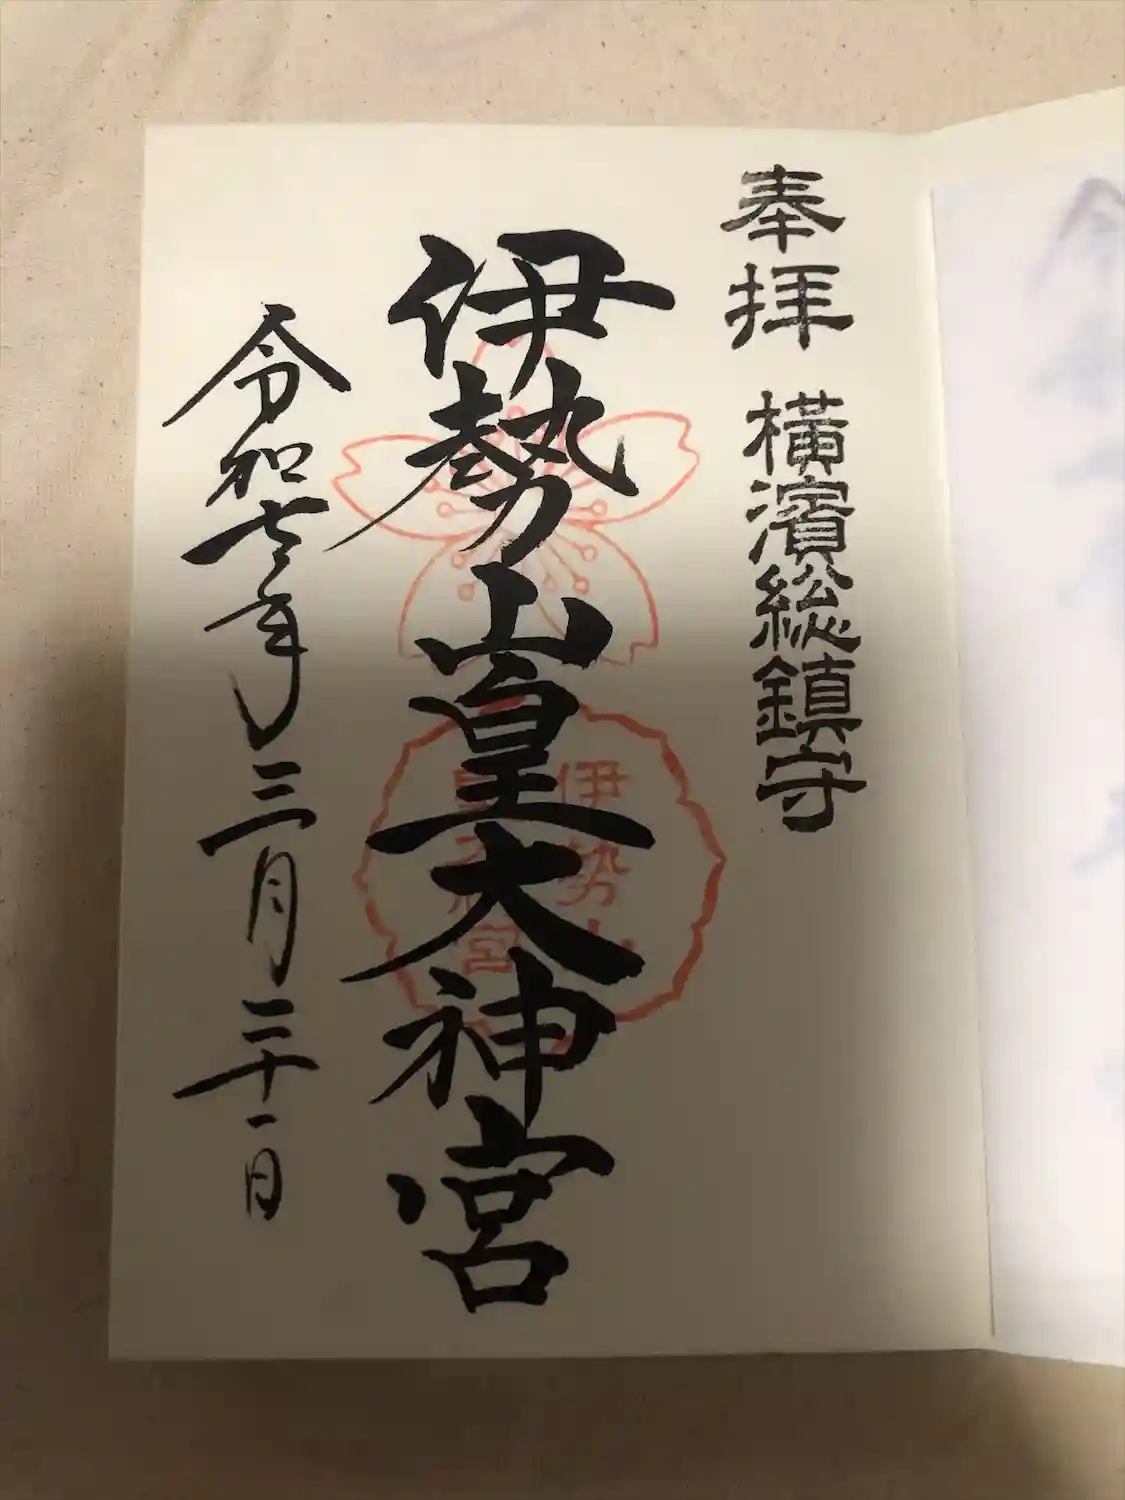 奉拝 横濱総鎮守
伊勢山皇大神宮
伊勢山
皇大神宮
令和七年三月三十一日